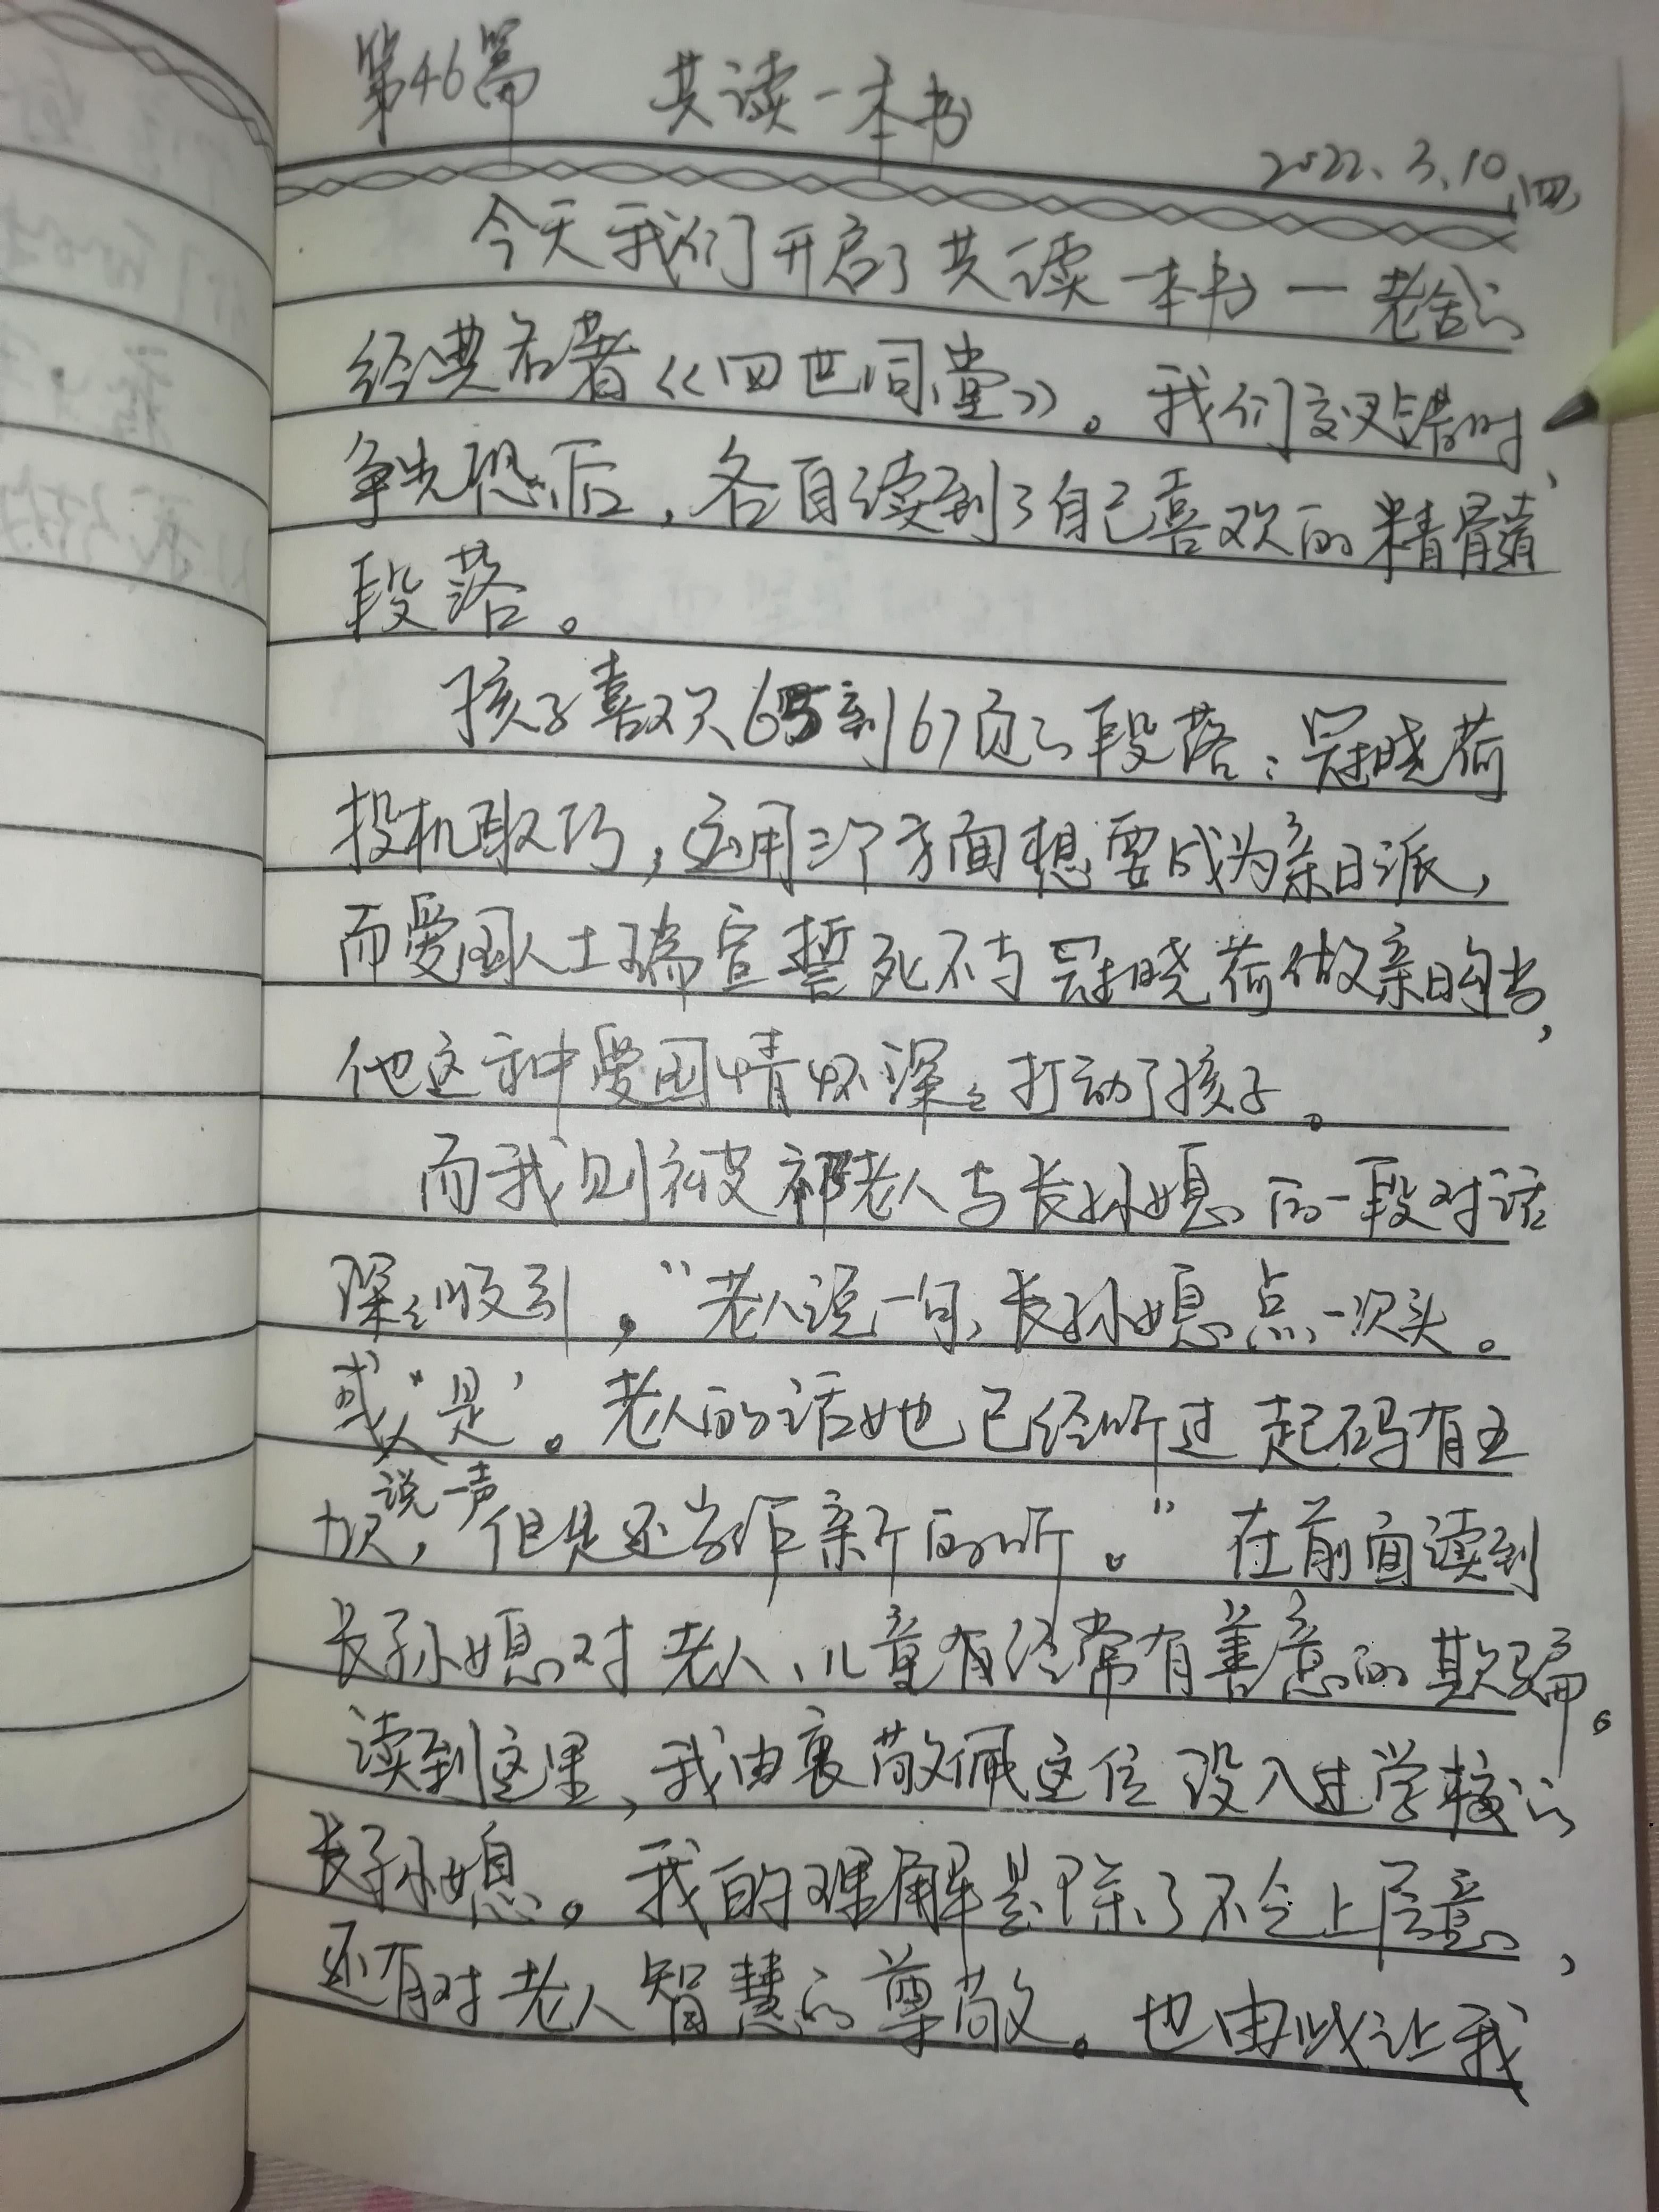 第46篇 共读一本书
2022.3.10,四
今天我们开启了共读一本书一老舍的
经典名著《四世同堂》。我们交叉错时、
争先恐后，各自读到了自己喜欢的精髓
段落。
孩子喜欢65到67页的段落：冠晓荷
投机取巧，运用三个方面想要成为亲日派，
而爱国人士瑞宣誓死不与冠晓荷做亲日勾当，
他这种爱国情怀深深打动了孩子。
而我则被祁老人与长孙媳的一段对话
深深吸引，“老人说一句，长孙媳点一次头。
或说一声“是”。老人的话她已经听过起码有五
十次，但是还当作新的听。”在前面读到
长孙媳对老人、儿童有经常有善意的欺骗。
读到这里，我由衷敬佩这位没入过学校的
长孙媳。我的理解是除了不会上层意，
还有对老人智慧的尊敬。也由此让我